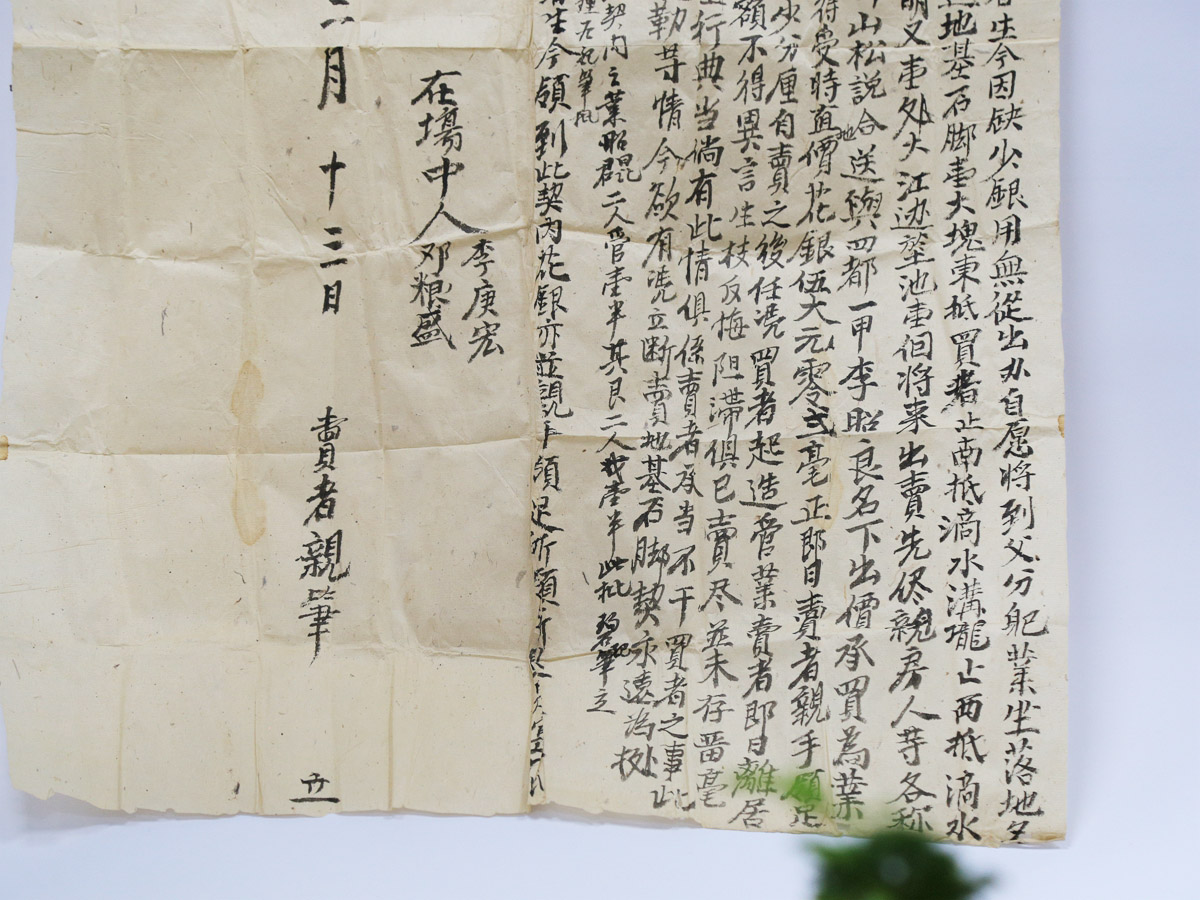 生今因缺少銀用無從出办自愿将到父分肥業坐落地
地基石脚壹大塊東抵買者止南抵滴水溝壠止西抵滴水
明又壹处大江边莝池壹個将来出賣先侭親房人等各称
山松説合送與四都一甲李昭良名下出價承買為業
得受時直價花銀伍大元零弍毫正即日賣者親手領足
少分厘自賣之後任凴買者起造管業賣者即日離居
額不得異言生枝反悔阻滞俱已賣尽並未存畱毫
行典当倘有此情俱係賣者承当不干買者之事此
勒等情今欲有凴立断賣地基石脚契永遠為据
契内之業昭 二人管壹半其良二人 壹半此批 筆立
生今領到此契内花銀亦並親手領足所領
在場中人
李庚宏
邓粮盛
二月十三日
賣者親筆
立